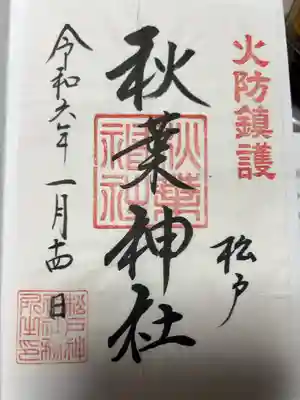 火防鎮護
松戸
秋葉神社
秋葉
神社
令和六年一月十四日
松戸神
社社務
所之印